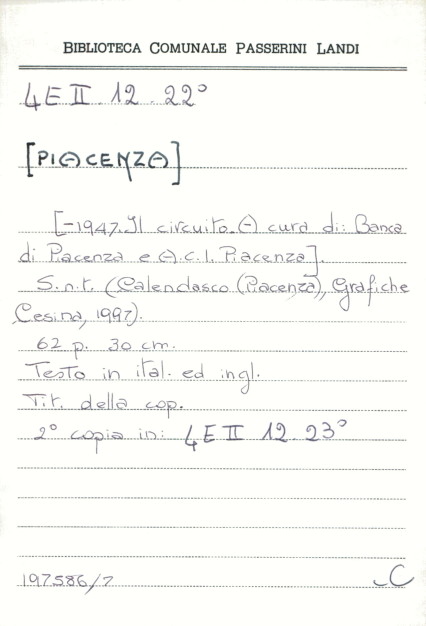 BIBLIOTECA COMUNALE PASSERINI LANDI
4 E II 12. 22°
[PIACENZA]
[-1947. Il circuito. A cura di: Banca
di Piacenza e A.C.I. Piacenza].
S.n.t. (Calendasco (Piacenza), Grafiche
Cesina, 1997).
62 p. 30 cm.
Testo in ital. ed ingl.
Tit. della cop.
2° copia in: 4 E II 12. 23°
197586/7
C